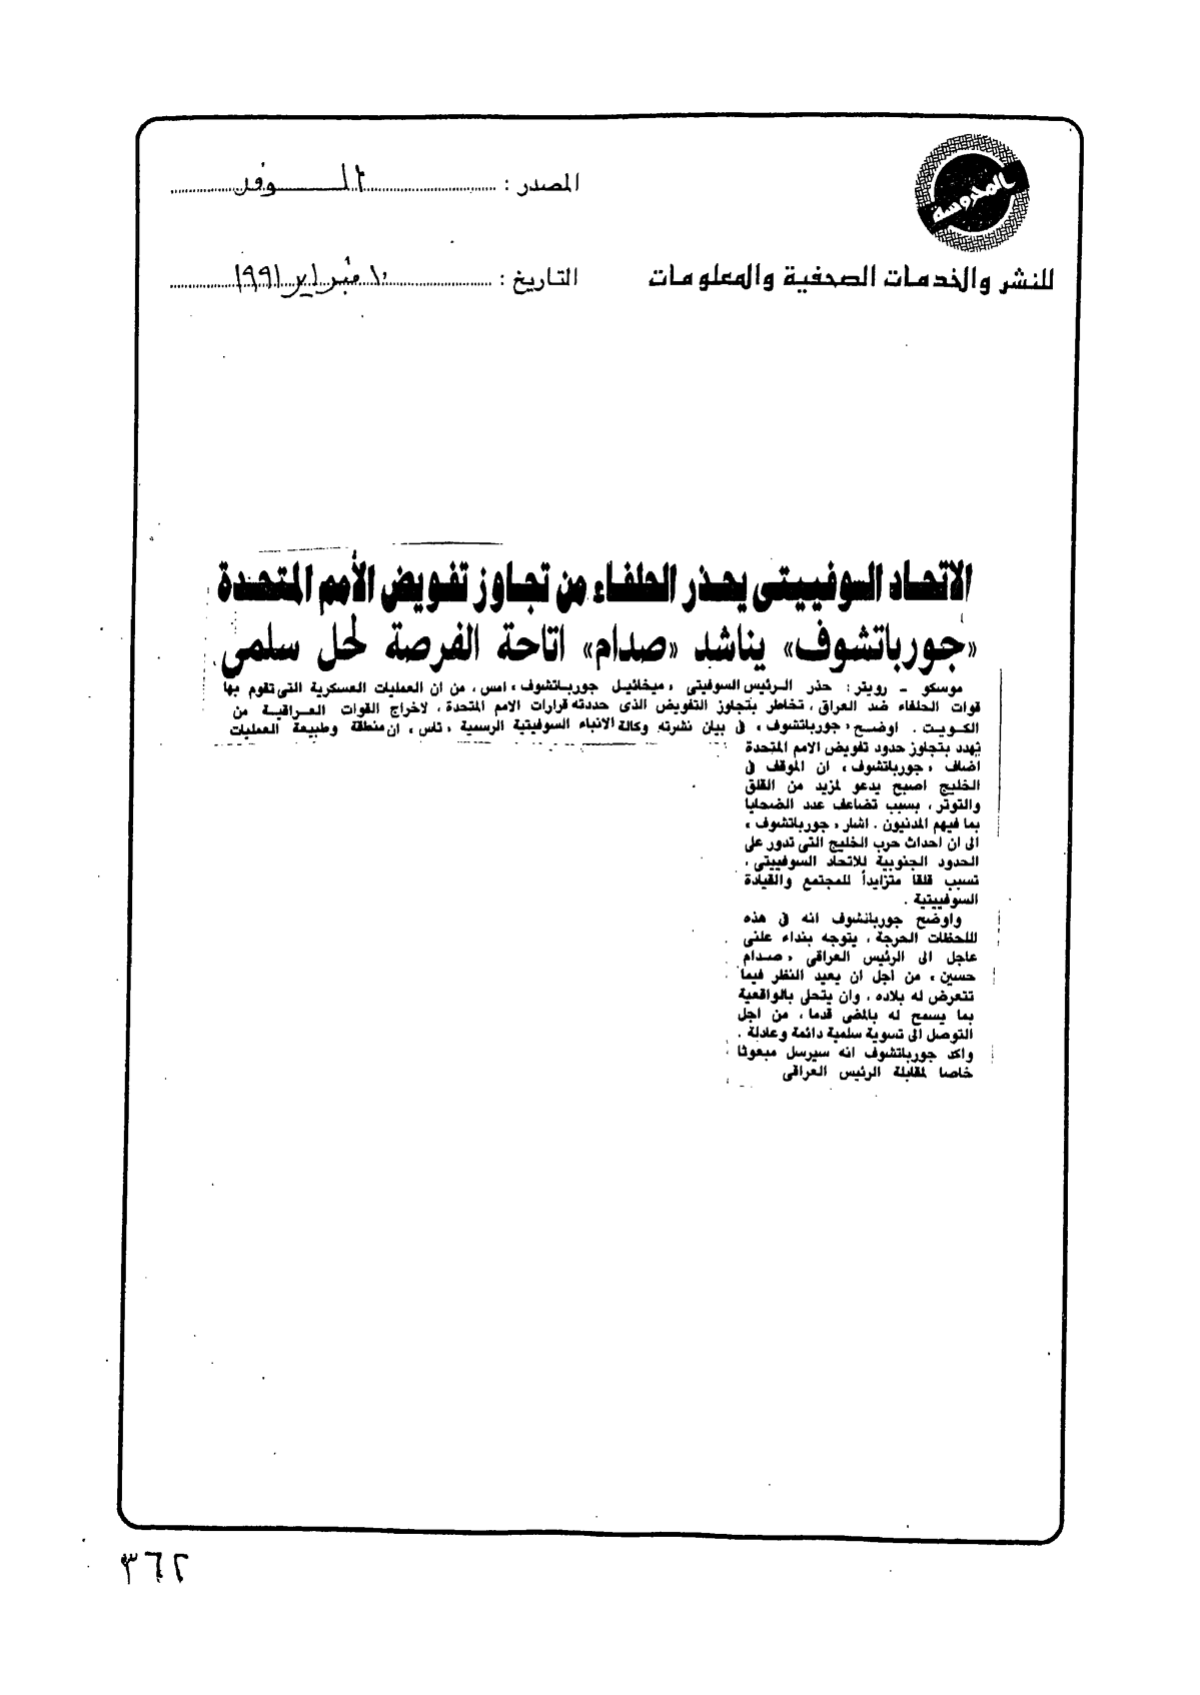 المحروسة
المصدر : الوفد
للنشر والخدمات الصحفية والمعلومات
التاريخ : ١٠ فبراير ١٩٩١
الاتحاد السوفييتى يحذر الحلفاء من تجاوز تفويض الأمم المتحدة
«جورباتشوف» يناشد «صدام» اتاحة الفرصة لحل سلمى
موسكو - رويتر : حذر الرئيس السوفيتى «ميخائيل جورباتشوف» امس ، من ان العمليات العسكرية التى تقوم بها
قوات الحلفاء ضد العراق ، تخاطر بتجاوز التفويض الذى حددته قرارات الامم المتحدة ، لاخراج القوات العراقية من
الكويت . اوضح «جورباتشوف» فى بيان نشرته وكالة الانباء السوفيتية الرسمية «تاس» ان منطقة وطبيعة العمليات
تهدد بتجاوز حدود تفويض الامم المتحدة
اضاف «جورباتشوف» ان الموقف فى
الخليج اصبح يدعو لمزيد من القلق
والتوتر ، بسبب تضاعف عدد الضحايا
بما فيهم المدنيون . اشار «جورباتشوف»
الى ان احداث حرب الخليج التى تدور على
الحدود الجنوبية للاتحاد السوفييتى ،
تسبب قلقا متزايداً للمجتمع والقيادة
السوفييتية .
واوضح جورباتشوف انه فى هذه
اللحظات الحرجة ، يتوجه بنداء علنى
عاجل الى الرئيس العراقى «صدام
حسين» من اجل ان يعيد النظر فيما
تتعرض له بلاده ، وان يتحلى بالواقعية
بما يسمح له بالمضى قدما ، من اجل
التوصل الى تسوية سلمية دائمة وعادلة .
واكد جورباتشوف انه سيرسل مبعوثا
خاصا لمقابلة الرئيس العراقى
٣٦٢